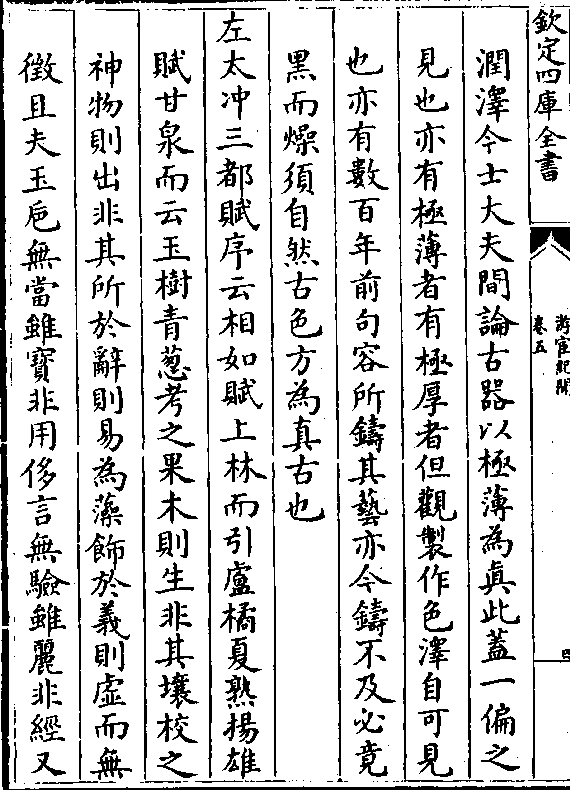 欽定四庫全書
游宦紀聞
卷五
四
潤澤今士大夫間論古器以極薄為真此蓋一偏之
見也亦有極薄者有極厚者但觀製作色澤自可見
也亦有數百年前句容所鑄其藝亦今鑄不及必竟
黑而燥須自然古色方為真古也
左太冲三都賦序云相如賦上林而引盧橘夏熟揚雄
賦甘泉而云玉樹青葱考之果木則生非其壤校之
神物則出非其所於辭則易為藻飾於義則虛而無
徵且夫玉巵無當雖寶非用侈言無驗雖麗非經又